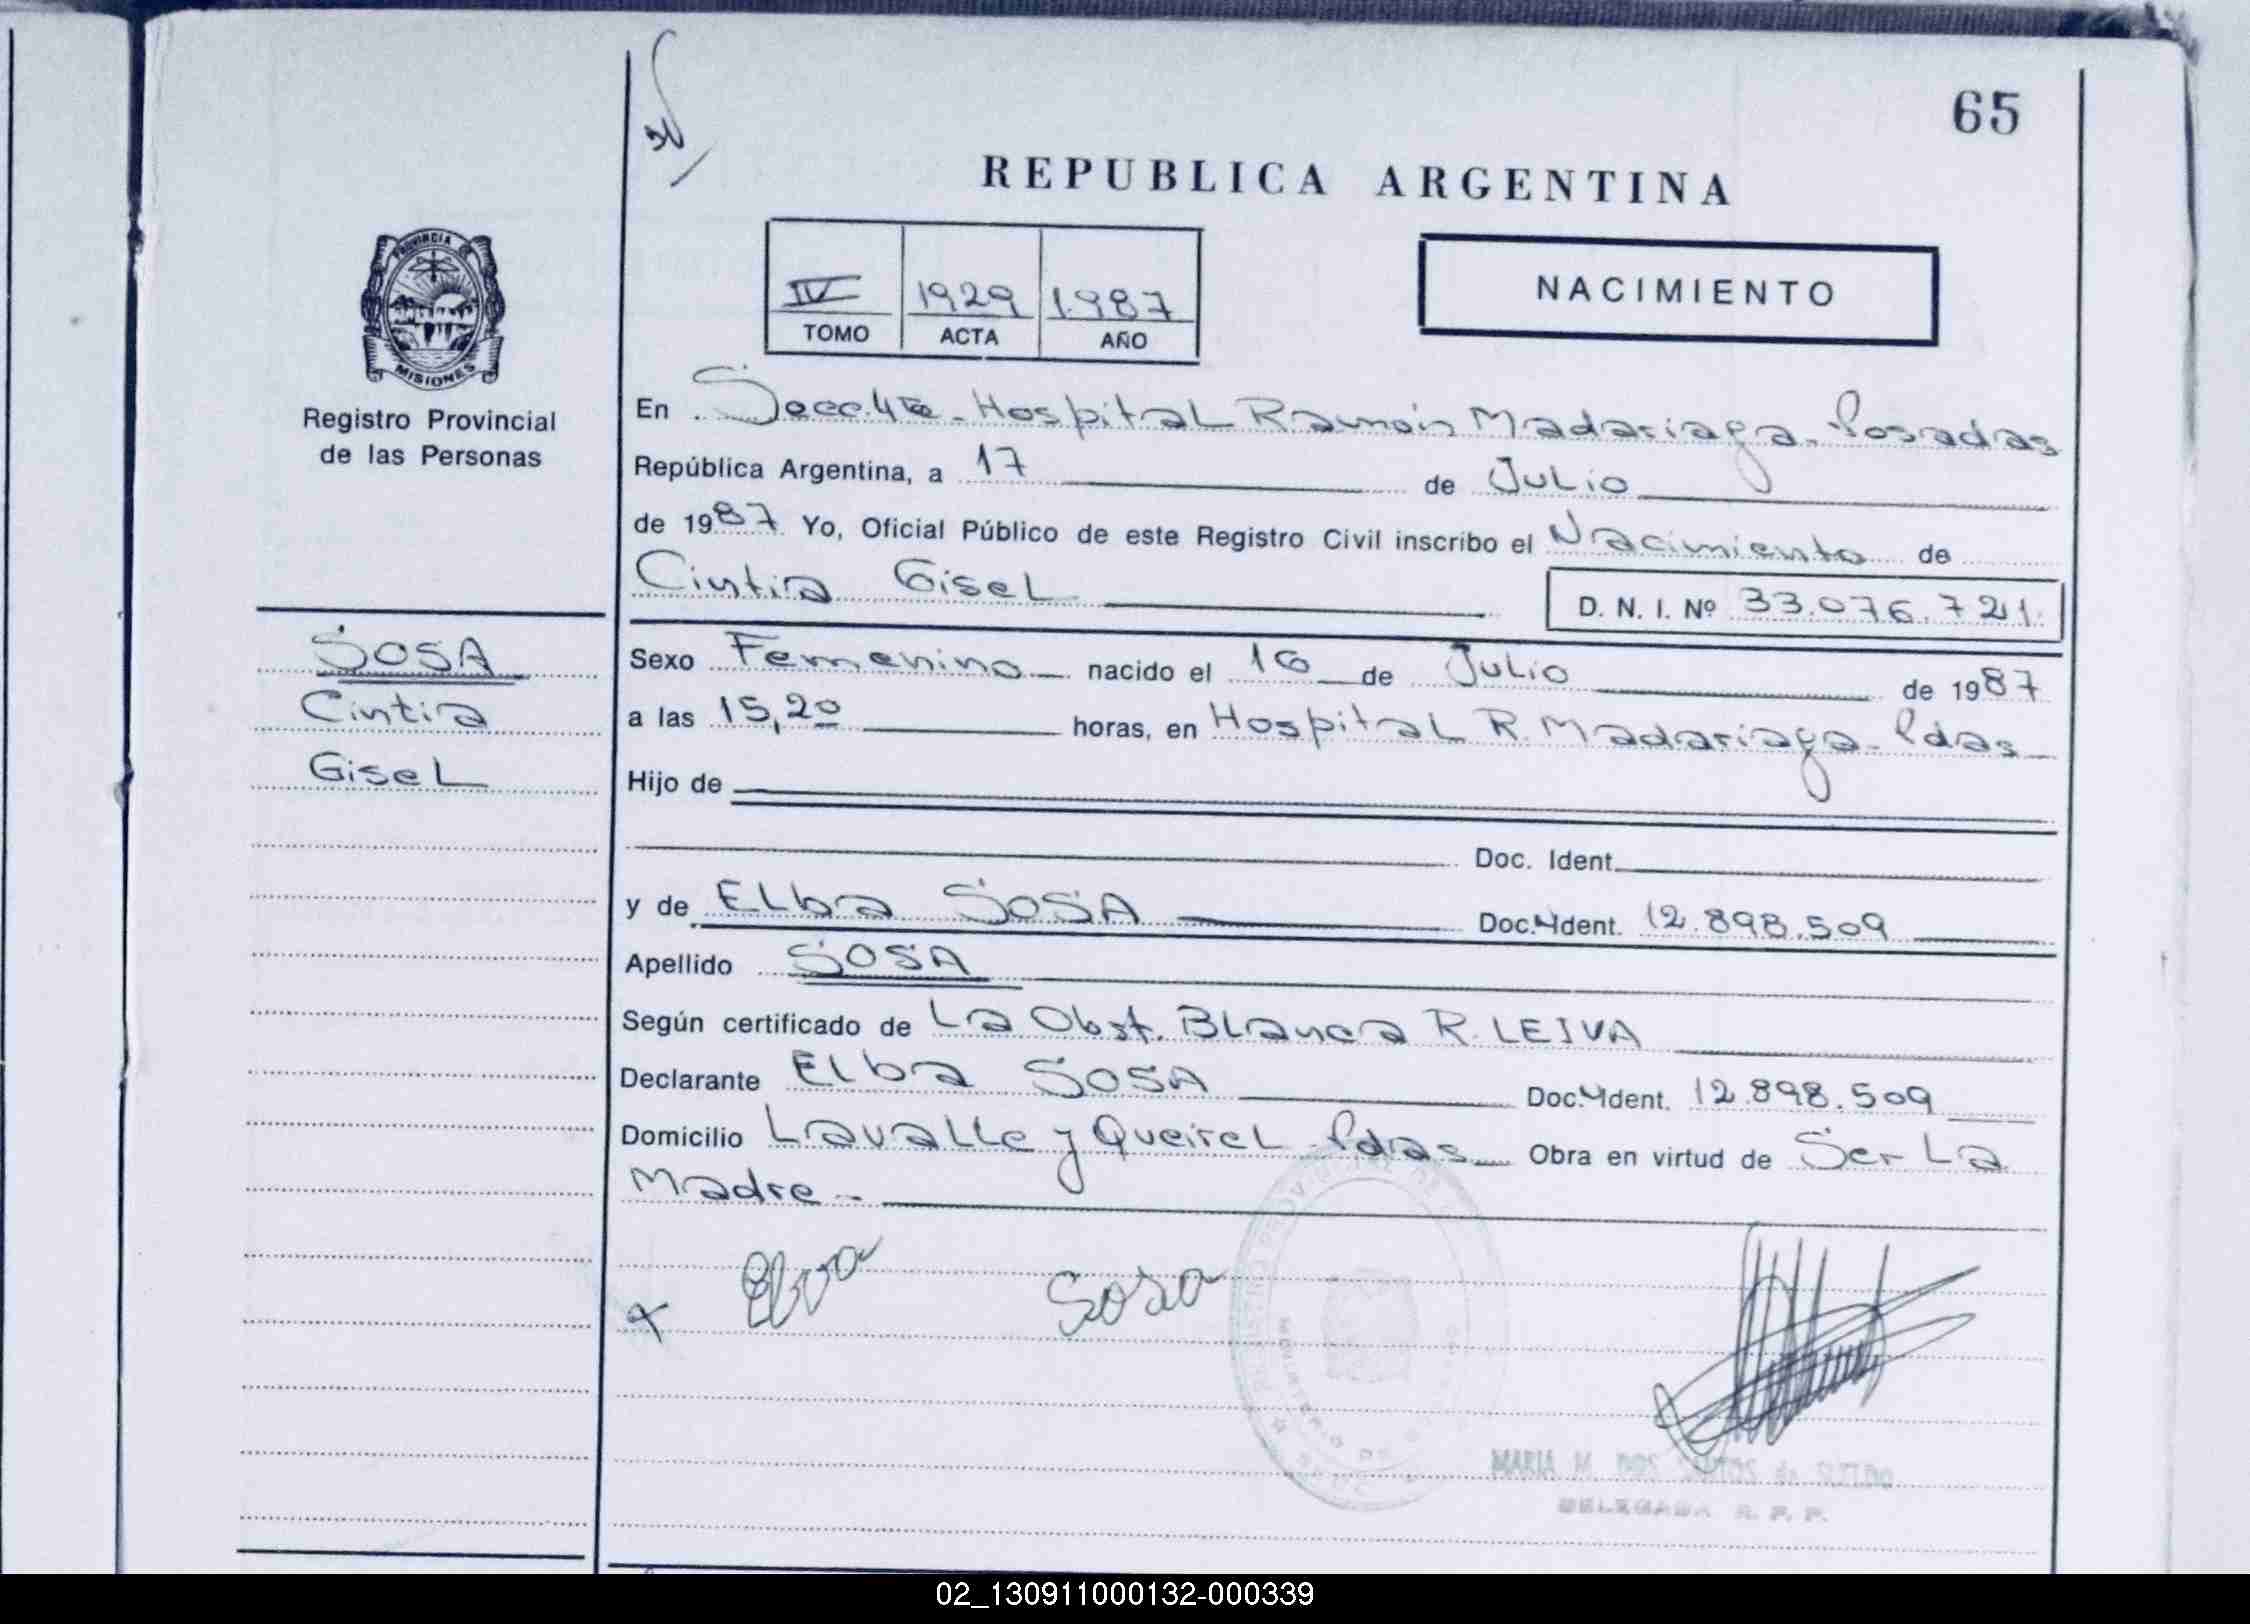 65
REPUBLICA ARGENTINA
PROVINCIA DE
MISIONES
Registro Provincial
de las Personas
IV 1929 1987
TOMO ACTA AÑO
NACIMIENTO
En Secc. 4ta - Hospital Ramón Madariaga - Posadas
República Argentina, a 17 de Julio
de 1987 Yo, Oficial Público de este Registro Civil inscribo el Nacimiento de
Cintia Gisel D. N. I. Nº 33.076.721
SOSA
Cintia
Gisel
Sexo Femenino nacido el 16 de Julio de 1987
a las 15,20 horas, en Hospital R. Madariaga - Pdas
Hijo de
Doc. Ident.
y de Elba SOSA Doc. Ident. 12.898.509
Apellido SOSA
Según certificado de La Obst. Blanca R. LEIVA
Declarante Elba SOSA Doc. Ident. 12.898.509
Domicilio Lavalle y Queirel - Pdas Obra en virtud de Ser La
Madre -
x Elva Sosa
MARIA M. DOS SANTOS de
DELEGADA R. P. P.
02_130911000132-000339